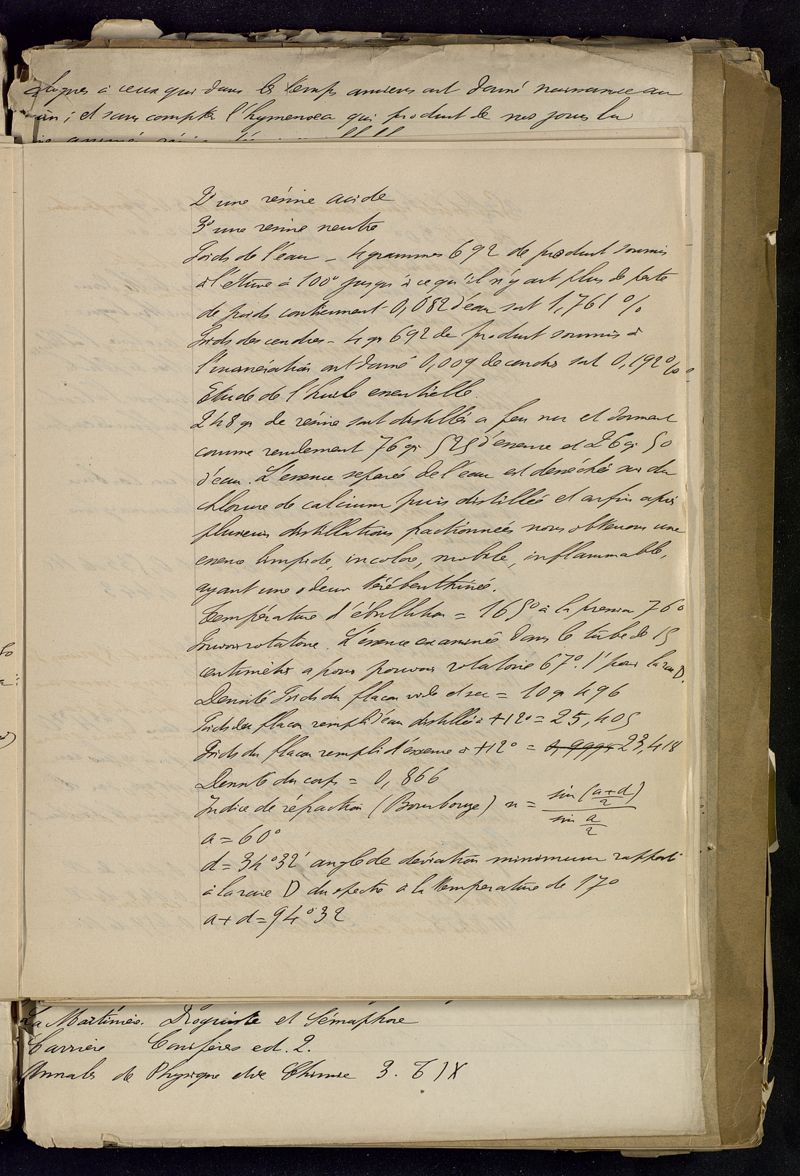 à ceux qui dans les temps anciens ont donné naissance au
; et sans compter l'hymenoea qui produit de nos jours la
2° une résine acide
3° une résine neutre
Poids de l'eau – 4 grammes 692 de produit soumis
à l'étuve à 100° jusqu'à ce qu'il n'y ait plus de perte
de poids contiennent 0,082 d'eau soit 1,761 %
Poids des cendres – 4 gr 692 de produit soumis à
l'incinération ont donné 0,009 de cendres soit 0,192 %
Etude de l'huile essentielle.
248 gr de résine sont distillés à feu nu et donnent
comme rendement 76 gr 525 d'essence et 26 gr 50
d'eau. L'essence séparée de l'eau est desséchée sur du
chlorure de calcium puis distillée et enfin après
plusieurs distillations fractionnées nous obtenons une
essence limpide, incolore, mobile, inflammable,
ayant une odeur térébenthinée.
Température d'ébullition = 165° à la pression 760
Pouvoir rotatoire. L'essence examinée dans le tube de 15
centimètres a pour pouvoir rotatoire 67°.1' pour la raie D.
Densité Poids du flacon vide et sec = 10 gr 496
Poids du flacon rempli d'eau distillée à +12° = 25,405
Poids du flacon rempli d'essence à +12° = 23,418
Densité du corps = 0,866
Indice de réfraction (Bourbouze) n = sin (a+d/2) / sin a/2
a = 60°
d = 34°32' angle de déviation minimum rapporté
à la raie D du spectre à la température de 17°
a+d = 94°32
La Martinière. Droguiste et Sémaphore
Carrière Conifères ed. 2.
Annales de Physique et de Chimie 3. T IX